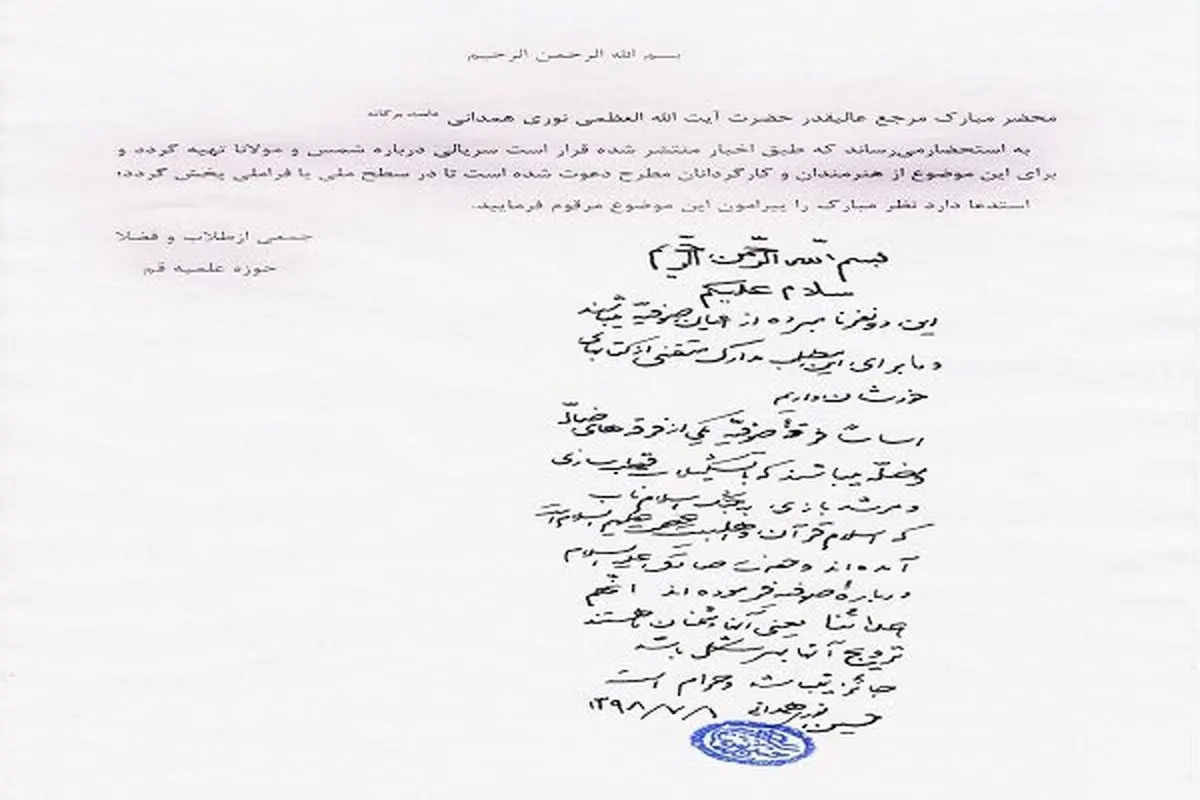 بسم الله الرحمن الرحیم
محضر مبارک مرجع عالیقدر حضرت آیت الله العظمی نوری همدانی دامت برکاته
به استحضارمی‌رساند که طبق اخبار منتشر شده قرار است سریالی درباره شمس و مولانا تهیه گردد و
برای این موضوع از هنرمندان و کارگردانان مطرح دعوت شده است تا در سطح ملی یا فراملی پخش گردد؛
استدعا دارد نظر مبارک را پیرامون این موضوع مرقوم فرمایید.
جمعی ازطلاب و فضلا
حوزه علمیه قم
بسم الله الرحمن الرحیم
سلام علیکم
این دو نفر نامبرده از اعیان صوفیّه میباشند
و ما برای این مطلب مدارک متقنی از کتابهای
خودشان داریم
اساساً فرقهٔ صوفیّه یکی از فرقه های ضالّه
و مضلّه میباشند که با تشکیلات قطب سازی
و مرشد بازی بجنگ اسلام ناب
که اسلام قرآن و اهلبیت علیهم السلام است
آمده اند و حضرت صادق علیه السلام
دربارهٔ صوفیه فرموده اند انّهم
اعدائنا یعنی آنها دشمنان ما هستند
ترویج آنها بهر شکلی باشد
جائز نمیباشد و حرام است
حسین نوری همدانی ۱۳۹۸/۷/۸